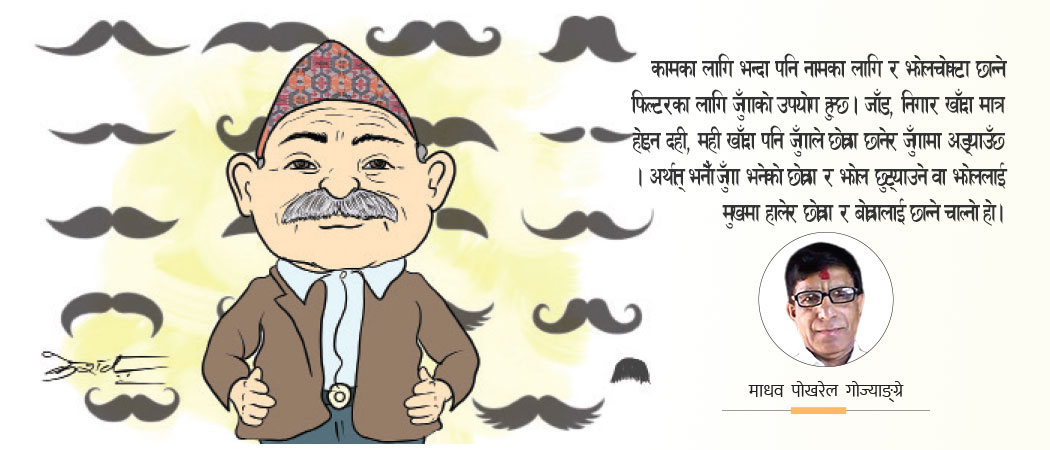 कामका लागि भन्दा पनि नामका लागि र झोलचोक्टा छान्ने
फिल्टरका लागि जुँगाको उपयोग हुन्छ । जाँड, निगार खाँदा मात्र
होइन दही, मही खाँदा पनि जुँगाले छोक्रा छानेर जुँगामा अड्याउँछ
। अर्थात् भनौँ जुँगा भनेको छोक्रा र झोल छुट्याउने वा झोललाई
मुखमा हालेर छोक्रा र बोक्रालाई छान्ने चाल्नो हो।
माधव पोखरेल गोज्याङ्ग्रे